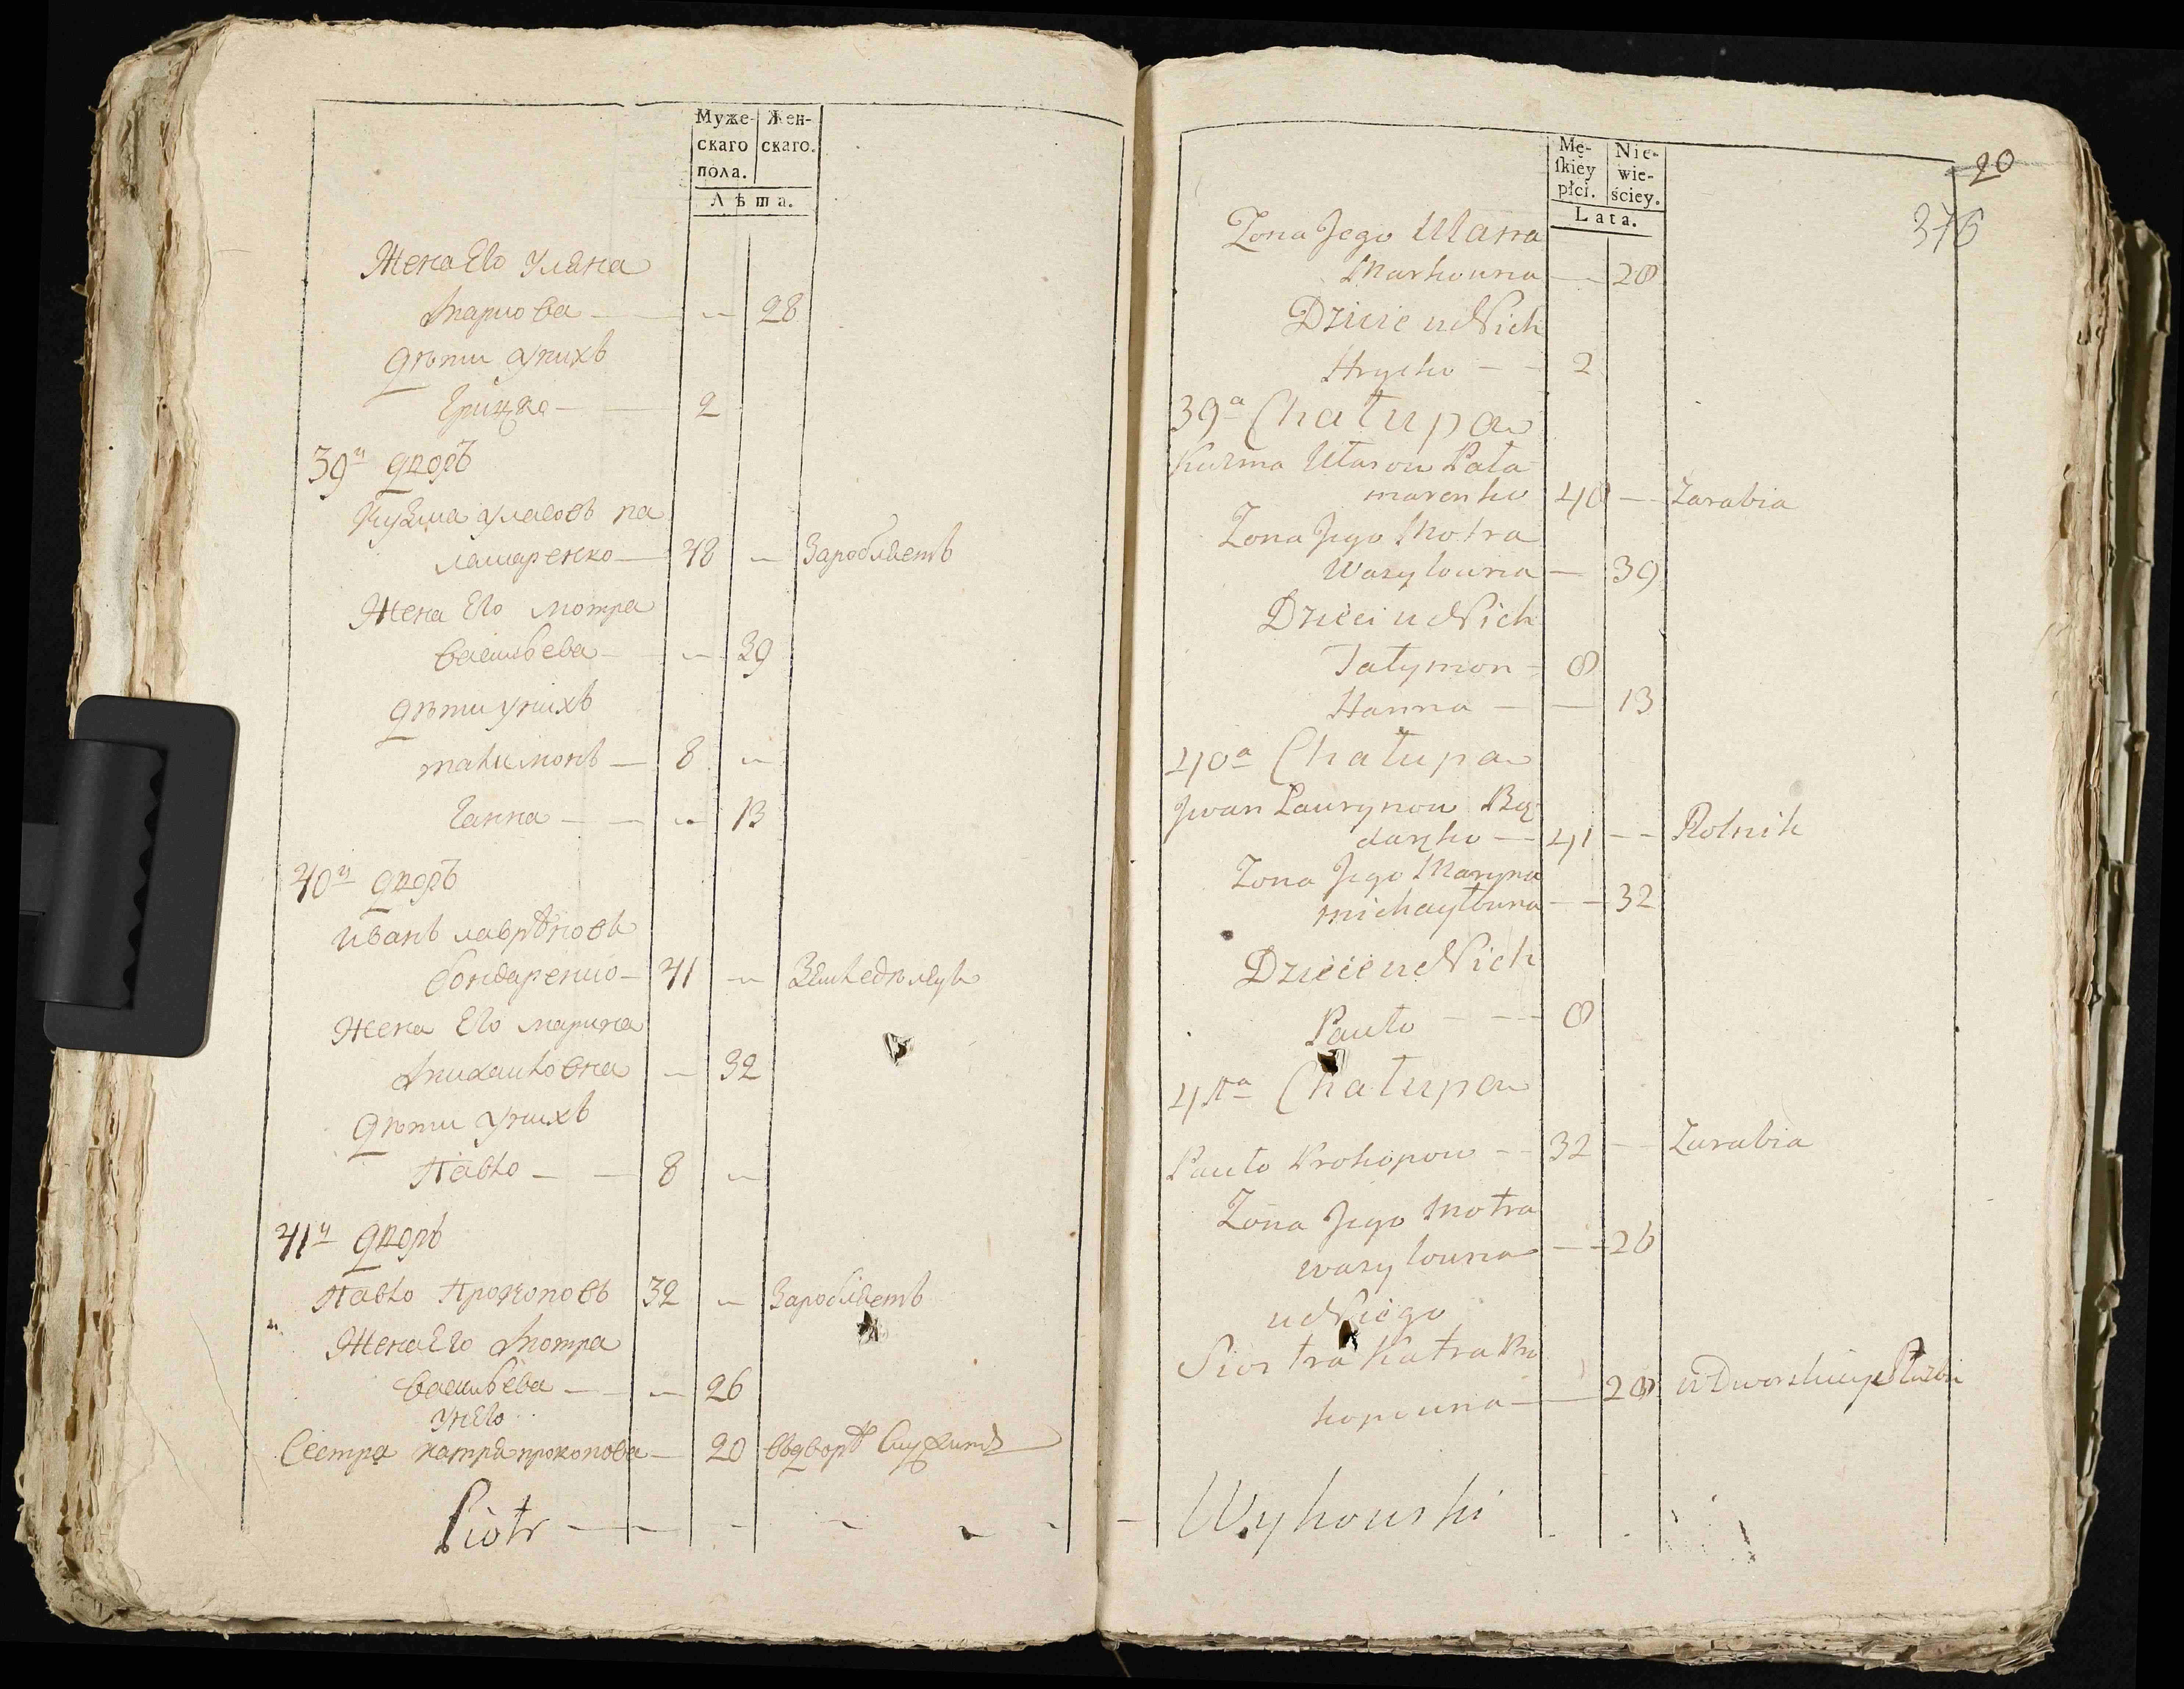 Муже- Жен-
скаго скаго.
пола.
Лѣта.
Жена Его Уляна
Маркова — — 28
Дѣти у них
Грицко — 2
39й дворъ
Кузма Уласовъ Па
ламаренко — 48 — Зароблветъ
Жена Его Мотра
Васильева — — 39
Дѣти у нихъ
Талимонъ — 8 —
Ганна — — 13
40й дворъ
Иванъ Лаврѣновъ
бондаренко — 41 —
Жена Его Марина
Михайловна — 32
Дѣти у нихъ
Павло — — 8 —
41й дворъ
Павло Прокоповъ 32 — Зароблаетъ
Жена Его Мотра
Васильева — — 26
у него
Сестра Катра Прокопова — 20 въ дворѣ Служитъ
Piotr — — — — —
20
376
Mę- Nie-
skiey wie-
płci. ściey.
Lata.
Zona Jego Ulana
Markowna — 28
Dzieci u Nich
Hryćko — — 2
39a Chałupa
Kuzma Ułasow Pała
marenko 48 — Zarabia
Zona Jego Motra
Wasylowna — 39
Dzieci u Nich
Tałymon — 8
Hanna — — 13
40a Chałupa
Jwan Laurynow Bą
darżko — 41 — — Rolnik
Zona Jego Maryna
michayłowna — — 32
Dzieci u Nich
Pauło — — — 8
41a Chałupa
Pauło Prokopow — 32 — Zarabia
Zona Jego Motra
wasylowna — — 26
u Niego
Siostra Katra Pro
kopowna — — 20 w Dworskiey Służbie
— Wyhowski